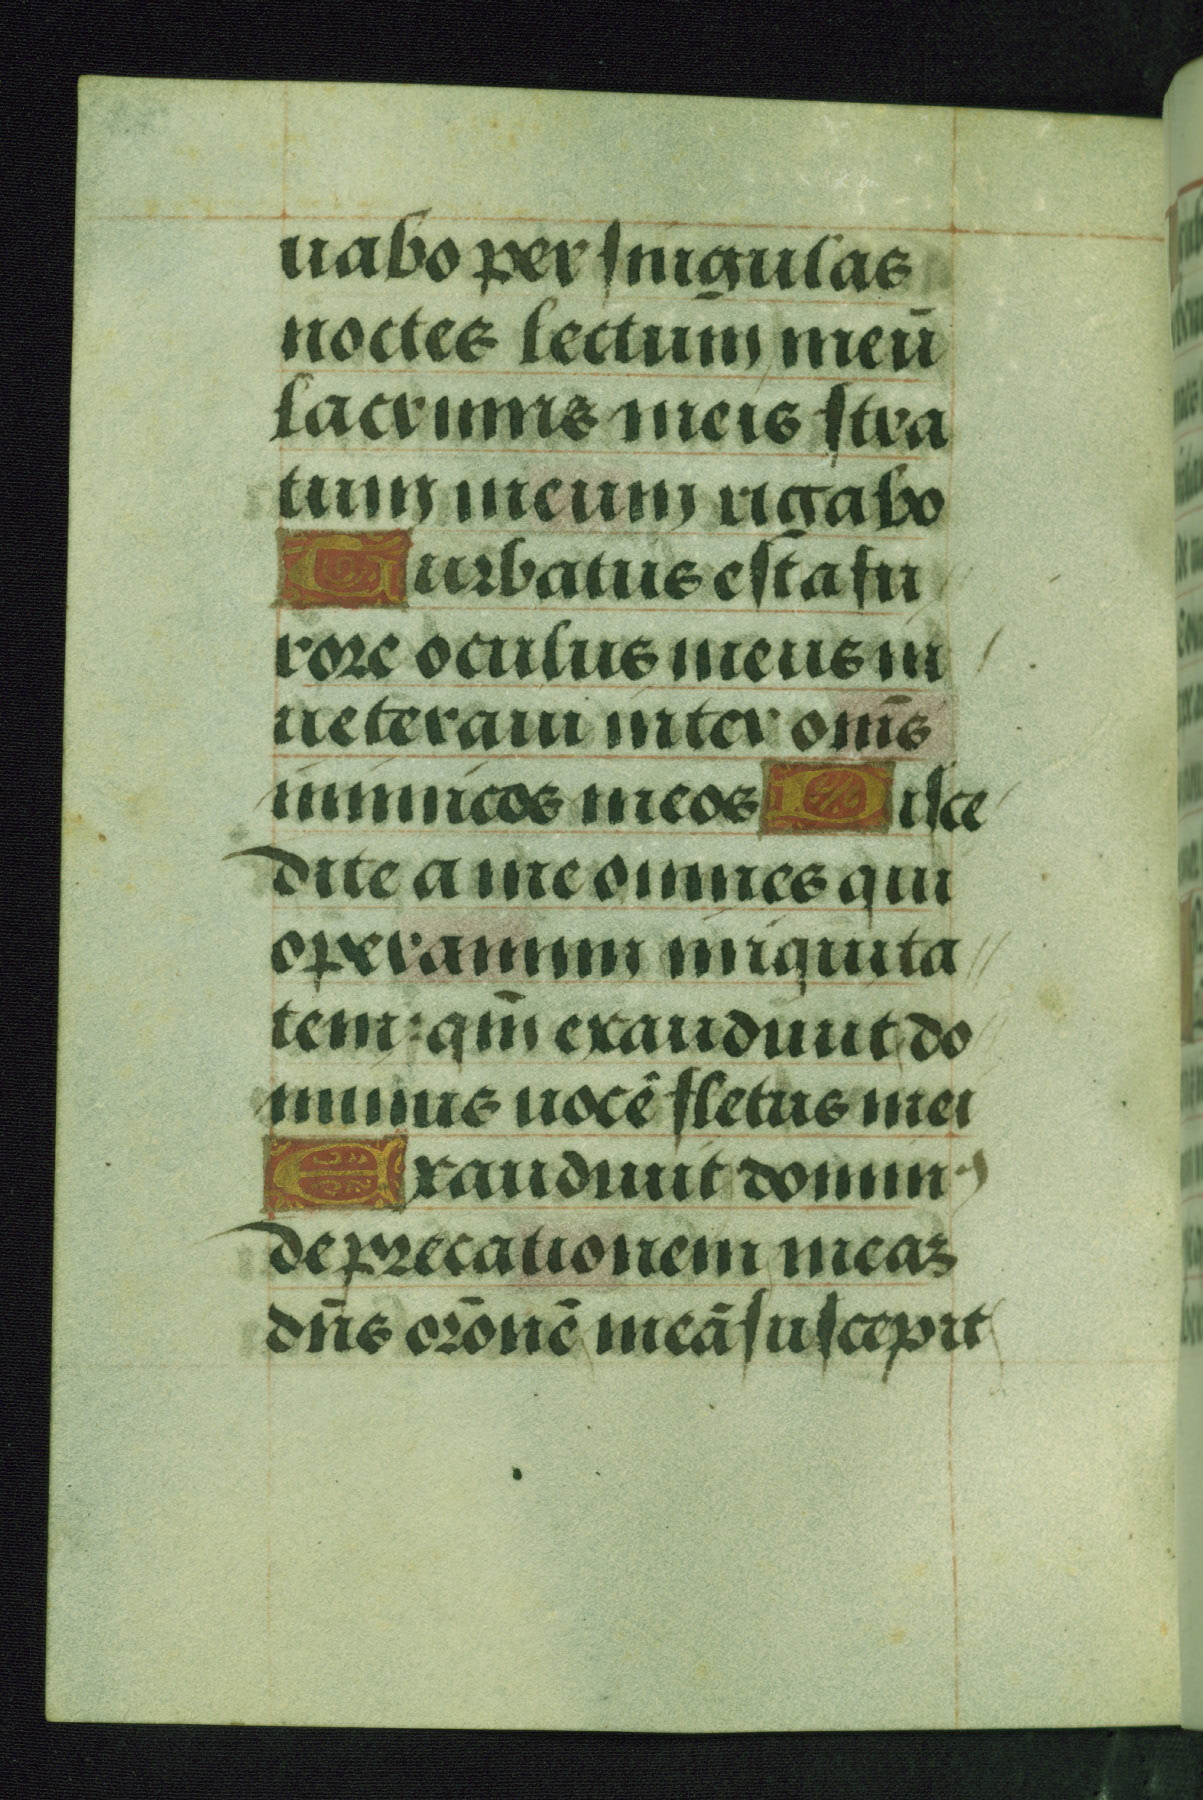 uabo per singulas
noctes lectum meū
lacrimis meis stra
tum meum rigabo
Turbatus est a fu
rore oculus meus in
ueteraui inter om̄s
inimicos meos Disce
dite a me omnes qui
operamini iniquita
tem: qm̄ exaudiuit do
minus uocē fletus mei
Exaudiuit domin⁹
deprecationem meaz
dn̄s orōnē meā suscepit